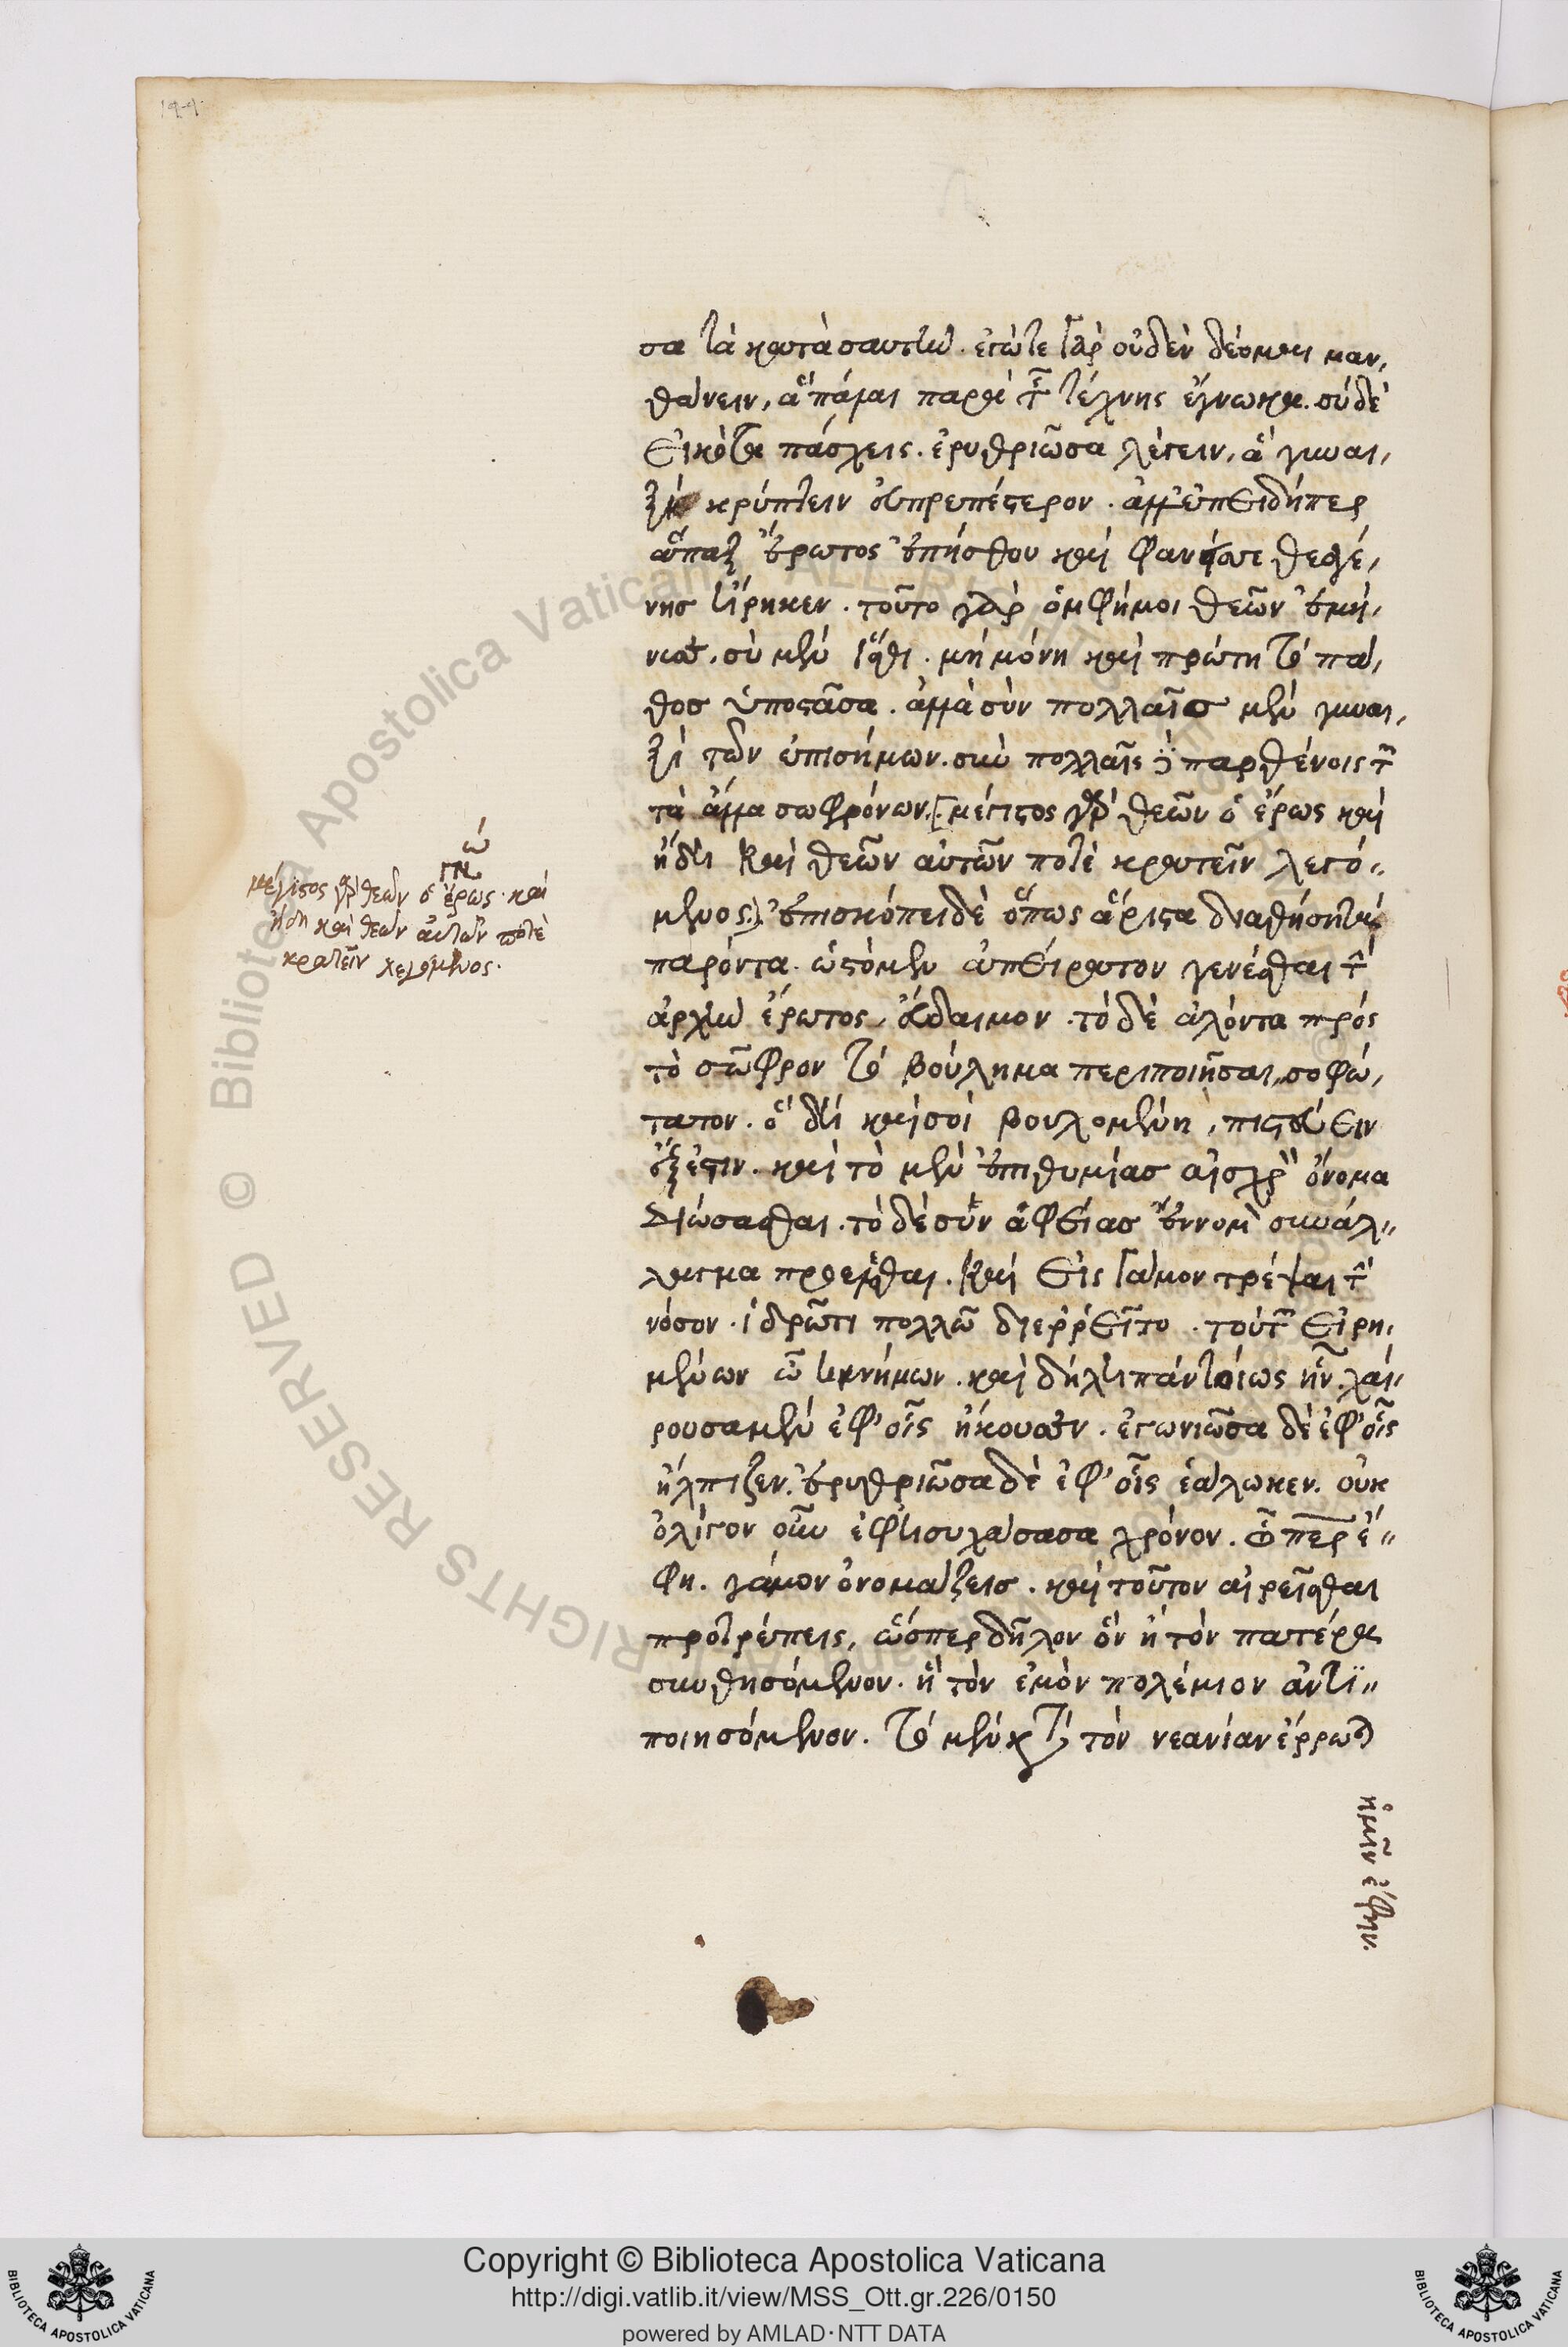 144
σα τὰ κατὰ σαυτὴν. ἐγώ τε γὰρ οὐδὲν δέομαι μαν,
θάνειν, ἃ πάλαι παρὰ τῆς τέχνης ἔγνωκα. σύ δὲ
εἰκότα πάσχεις. ἐρυθριῶσα λέγειν, ἃ γυναι,
ξὶ κρύπτειν εὐπρεπέστερον. ἀλλ' ἐπειδήπερ
ἅπαξ ἔρωτος ἐπήσθου καὶ φανείς σε θεαγέ,
νης ᾕρηκεν. τοῦτο γὰρ ὀμφή μοι θεῶν ἐμή,
νυσε. σὺ μὲν ἴσθι. μὴ μόνη καὶ πρώτη τὸ πά,
θος ὑποστᾶσα. ἀλλὰ σὺν πολλαῖς μὲν γυναι,
ξὶ τῶν ἐπισήμων. σὺν πολλαῖς δὲ παρθένοις τῶν
τὰ ἄλλα σωφρόνων. [μέγιστος γὰρ θεῶν ὁ ἔρως καὶ
ἤδη καὶ θεῶν αὐτῶν ποτὲ κρατεῖν λεγό,,
μενος.) ἐπισκόπει δὲ ὅπως ἄριστα διαθήσῃ τὰ
παρόντα. ὡς τὸ μὲν ἀπείρατον γενέσθαι τὴν
ἀρχὴν ἔρωτος, εὔδαιμον. τὸ δὲ ἁλόντα πρός
τὸ σῶφρον τὸ βούλημα περιποιῆσαι,, σοφώ,
τατον. ὃ δὴ καὶ σοὶ βουλομένῃ, πιστεύειν
ἔξεστιν. καὶ τὸ μὲν ἐπιθυμίας αἰσχρὸν ὄνομα
διώσασθαι. τὸ δὲ συναφείας ἔννομον συνάλ,,
λαγμα προελέσθαι. καὶ εἰς γάμον τρέψαι τὴν
νόσον. ἱδρῶτι πολλῷ διερρεῖτο. τούτων εἰρη,
μένων ὦ κνήμων. καὶ δήλη παντοίως ἦν. χαί,
ρουσα μὲν ἐφ' οἷς ἤκουσεν. ἀγωνιῶσα δὲ ἐφ' οἷς
ἤλπιζεν. ἐρυθριῶσα δὲ ἐφ' οἷς ἑάλωκεν. οὐκ
ὀλίγον οὖν ἐφησυχάσασα χρόνον. ὦ πάτερ ἔ,,
φη. γάμον ὀνομάζεις. καὶ τοῦτον αἱρεῖσθαι
προτρέπεις, ὥσπερ δῆλον ὂν ἢ τὸν πατέρα
συνθησόμενον. ἢ τὸν ἐμὸν πολέμιον ἀντι,,
ποιησόμενον. τὸ μὲν κατὰ τὸν νεανίαν ἐρρῶσθ
ἡμῖν ἔφην.
ὡ
ΓΝ
μέγιστος γὰρ θεῶν ὁ ἔρως. καὶ
ἤδη καὶ θεῶν αὐτῶν ποτὲ
κρατεῖν λεγόμενος.
Copyright © Biblioteca Apostolica Vaticana
http://digi.vatlib.it/view/MSS_Ott.gr.226/0150
powered by AMLAD·NTT DATA
BIBLIOTECA APOSTOLICA VATICANA
BIBLIOTECA APOSTOLICA VATICANA